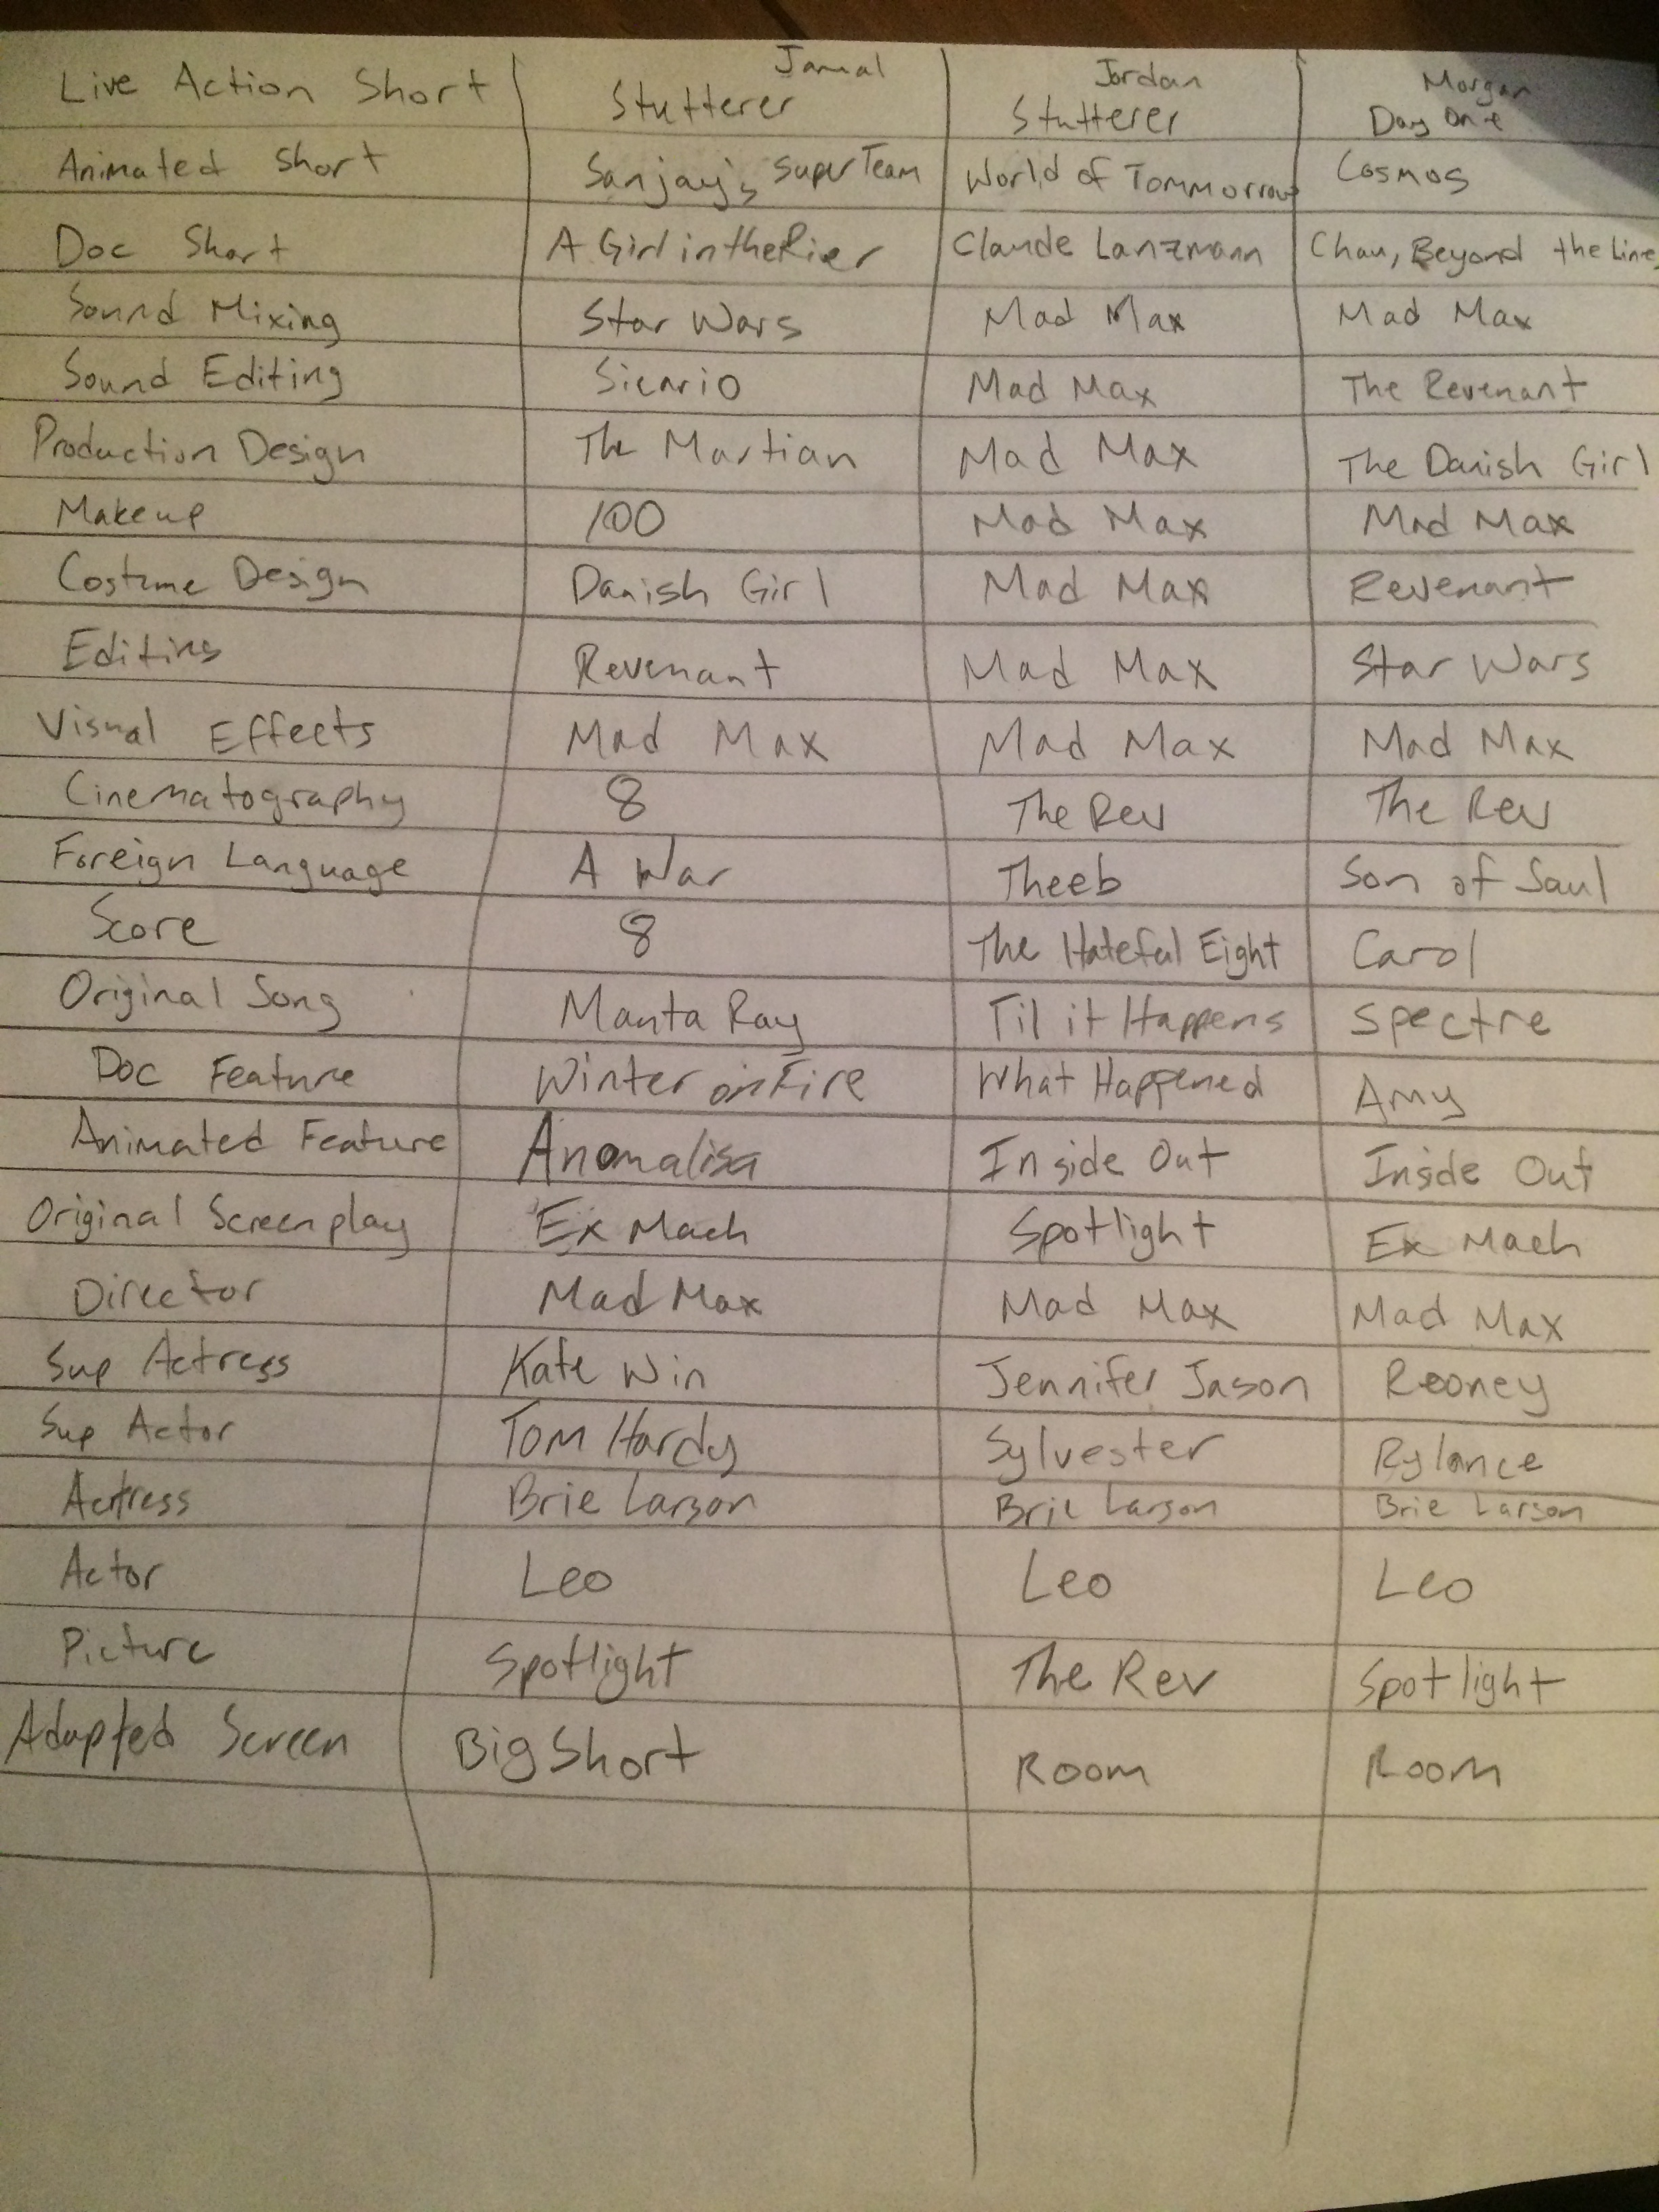 Jamal Jordan Morgan
Live Action Short Stutterer Stutterer Day One
Animated Short Sanjay's Super Team World of Tommorrow Cosmos
Doc Short A Girl in the Rier Claude Lanzmann Chau, Beyond the Lines
Sound Mixing Star Wars Mad Max Mad Max
Sound Editing Sicario Mad Max The Revenant
Production Design The Martian Mad Max The Danish Girl
Makeup 100 Mad Max Mad Max
Costume Design Danish Girl Mad Max Revenant
Editing Revenant Mad Max Star Wars
Visual Effects Mad Max Mad Max Mad Max
Cinematography 8 The Rev The Rev
Foreign Language A War Theeb Son of Saul
Score 8 The Hateful Eight Carol
Original Song Manta Ray Til it Happens Spectre
Doc Feature Winter on Fire What Happened Amy
Animated Feature Anomalisa Inside Out Inside Out
Original Screenplay Ex Mach Spotlight Ex Mach
Director Mad Max Mad Max Mad Max
Sup Actress Kate Win Jennifer Jason Rooney
Sup Actor Tom Hardy Sylvester Rylance
Actress Brie Larson Brie Larson Brie Larson
Actor Leo Leo Leo
Picture Spotlight The Rev Spotlight
Adapted Screen Big Short Room Room